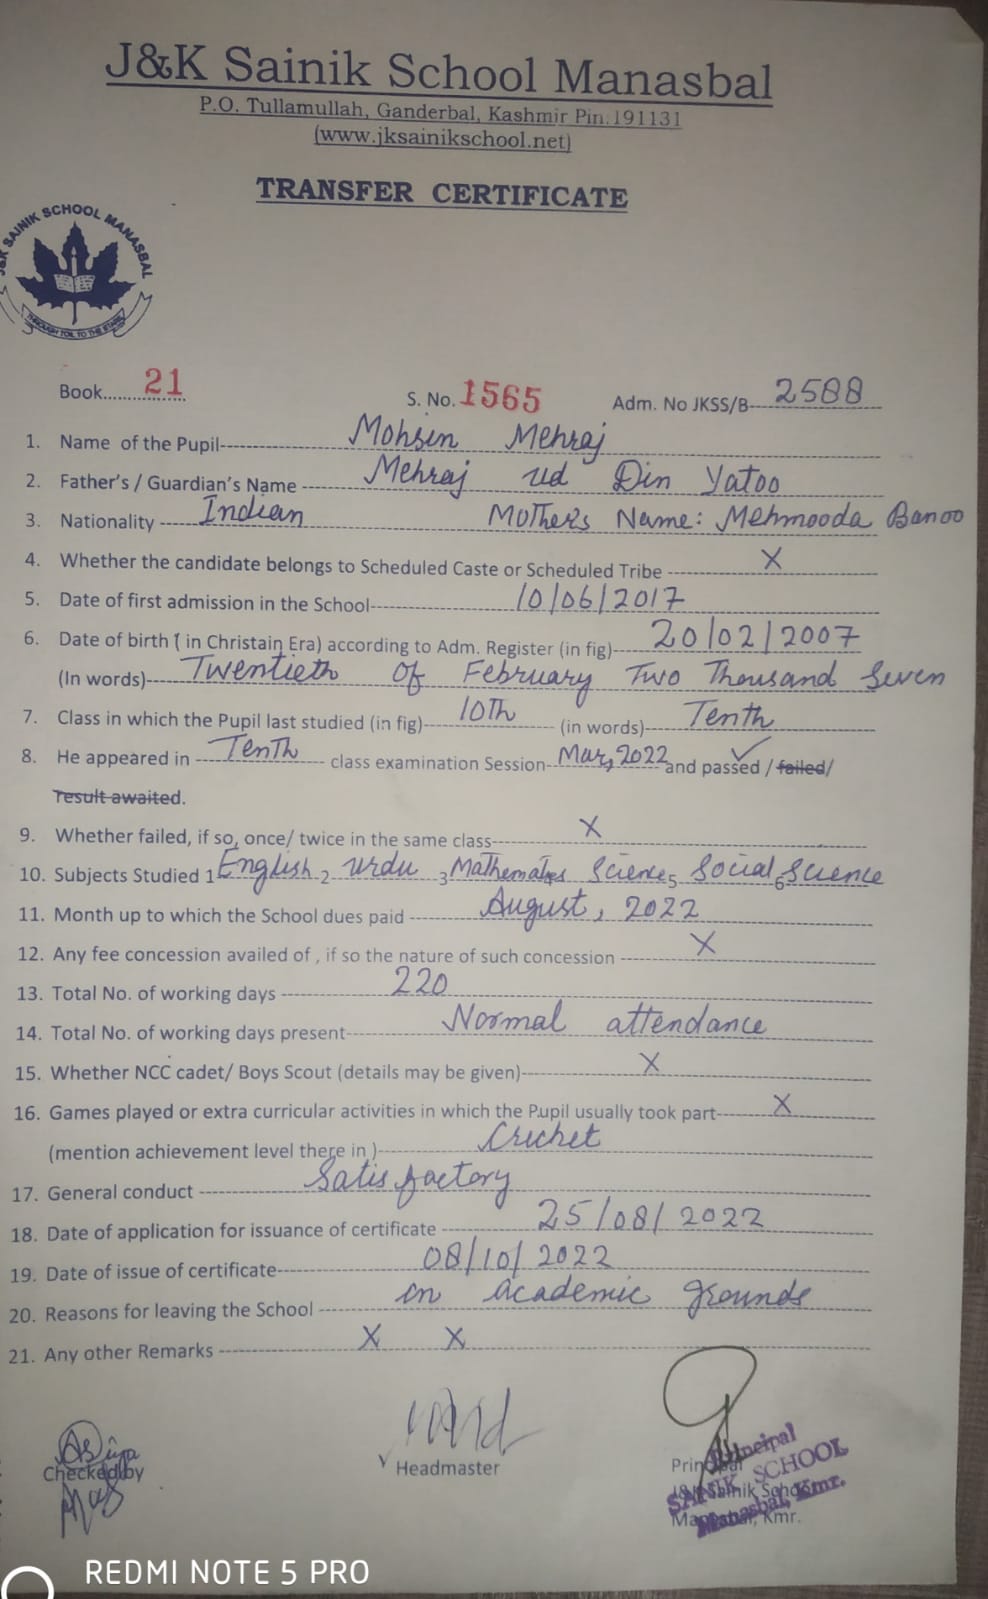 J&K Sainik School Manasbal
P.O. Tullamullah, Ganderbal, Kashmir Pin.191131
(www.jksainikschool.net)
TRANSFER CERTIFICATE
J&K SAINIK SCHOOL MANASBAL
THROUGH TOIL TO THE STARS
Book........21 S. No. 1565 Adm. No JKSS/B----2588
1. Name of the Pupil---- Mohsin Mehraj
2. Father's / Guardian's Name ---- Mehraj ud Din Yatoo
3. Nationality ---- Indian Mother's Name: Mehmooda Banoo
4. Whether the candidate belongs to Scheduled Caste or Scheduled Tribe ---- X
5. Date of first admission in the School---- 10/06/2017
6. Date of birth ( in Christain Era) according to Adm. Register (in fig)---- 20/02/2007
(In words)---- Twentieth of February Two Thousand Seven
7. Class in which the Pupil last studied (in fig)---- 10Th ---- (in words)---- Tenth
8. He appeared in ---- Tenth ---- class examination Session- Mar,2022 and passed / failed/
result awaited.
9. Whether failed, if so, once/ twice in the same class---- X
10. Subjects Studied 1 English 2 Urdu 3 Mathematics Science 5 Social 6 Science
11. Month up to which the School dues paid ---- August, 2022
12. Any fee concession availed of , if so the nature of such concession ---- X
13. Total No. of working days ---- 220
14. Total No. of working days present---- Normal attendance
15. Whether NCC cadet/ Boys Scout (details may be given)---- X
16. Games played or extra curricular activities in which the Pupil usually took part---- X
(mention achievement level there in )---- Cricket
17. General conduct ---- Satisfactory
18. Date of application for issuance of certificate ---- 25/08/2022
19. Date of issue of certificate---- 08/10/2022
20. Reasons for leaving the School ---- on academic grounds
21. Any other Remarks ---- X X
Checked by Headmaster Principal
J&K Sainik School
Manasbal, Kmr.
Principal
SAINIK SCHOOL
Manasbal, Kmr.
REDMI NOTE 5 PRO